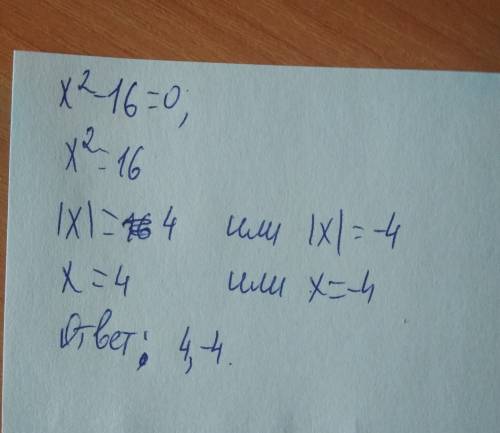 x²-16=0,
x²=16
|x|=4 или |x|=-4
x=4 или x=-4
Ответ: 4,-4.